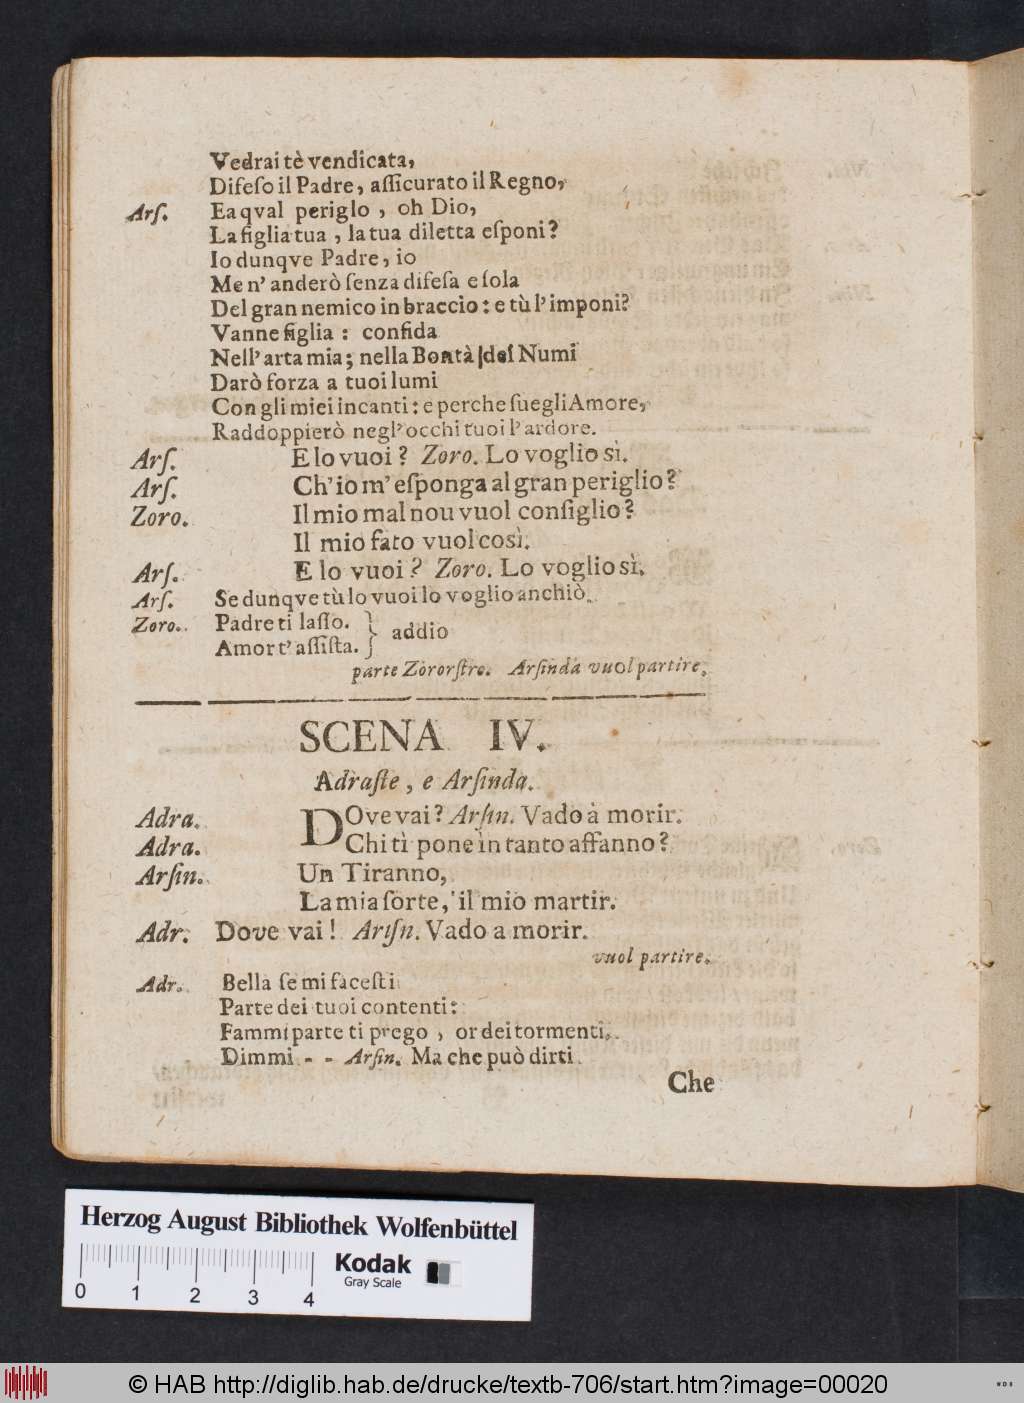 Vedrai tè vendicata,
Difeſo il Padre, aſſicurato il Regno,
Arſ. Ea qval periglo, oh Dio,
La figlia tua, la tua diletta eſponi?
Io dunqve Padre, io
Me n' anderò ſenza difeſa e ſola
Del gran nemico in braccio: e tù l' imponi?
Vanne figlia: confida
Nell' arta mia; nella Bontà |dei Numi
Darò forza a tuoi lumi
Con gli miei incanti: e perche ſuegli Amore,
Raddoppierò negl' occhi tuoi l' ardore.
Arſ. E lo vuoi? Zoro. Lo voglio sì.
Arſ. Ch' io m' eſponga al gran periglio?
Zoro. Il mio mal nou vuol conſiglio?
Il mio fato vuol così.
Arſ. E lo vuoi? Zoro. Lo voglio sì.
Arſ. Se dunqve tù lo vuoi lo voglio anchiò.
Zoro. Padre ti laſſo. } addio
Amor t' aſſiſta.
parte Zororſtro. Arſinda vuol partire.
SCENA IV.
Adraſte, e Arſinda.
Adra. DOve vai? Arſin. Vado à morir.
Adra. Chi tì pone in tanto affanno?
Arſin. Un Tiranno,
La mia ſorte, il mio martir.
Adr. Dove vai! Ariſn. Vado a morir.
vuol partire.
Adr. Bella ſe mi faceſti
Parte dei tuoi contenti:
Fammi parte ti prego, or dei tormenti.
Dimmi - - Arſin. Ma che può dirti
Che
Herzog August Bibliothek Wolfenbüttel
Kodak
Gray Scale
0 1 2 3 4
© HAB http://diglib.hab.de/drucke/textb-706/start.htm?image=00020